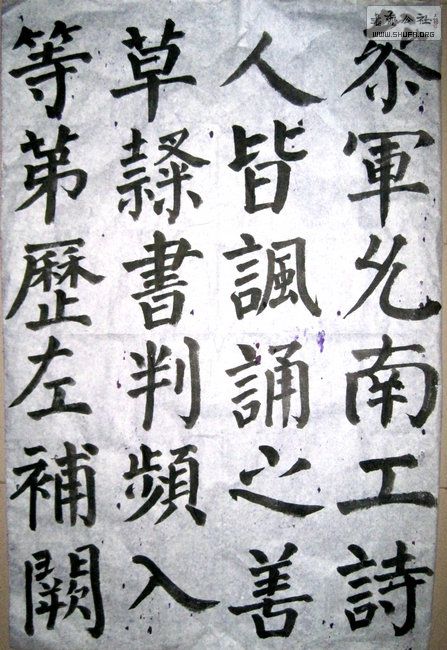 WWW.SHUFA.ORG
叅軍允南工詩
人皆諷誦之善
草隸書判頻入
等第歷左補闕